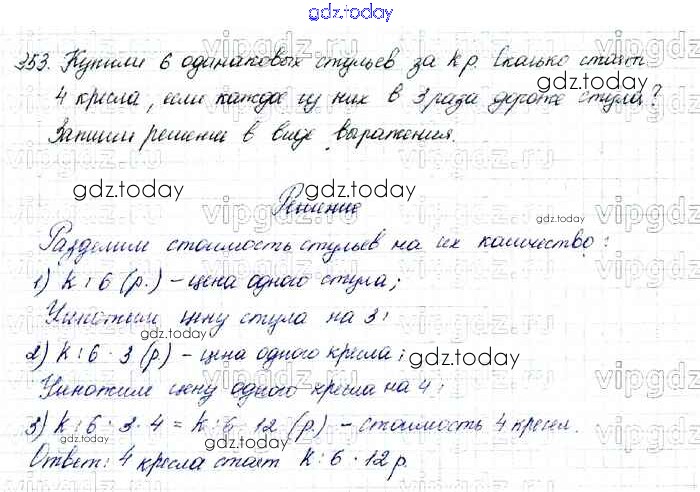 gdz.today
353. Купили 6 одинаковых стульев за k р. Сколько стоят
4 кресла, если каждое из них в 3 раза дороже стула?
Запиши решение в виде выражения.
gdz.today
gdz.today
Решение
gdz.today
Разделим стоимость стульев на их количество:
1) k : 6 (р.) – цена одного стула;
Умножим цену стула на 3:
gdz.today
2) k : 6 · 3 (р.) – цена одного кресла;
gdz.today
Умножим цену одного кресла на 4:
3) k : 6 · 3 · 4 = k : 6 · 12 (р.) – стоимость 4 кресел.
gdz.today
gdz.today
Ответ: 4 кресла стоят k : 6 · 12 р.